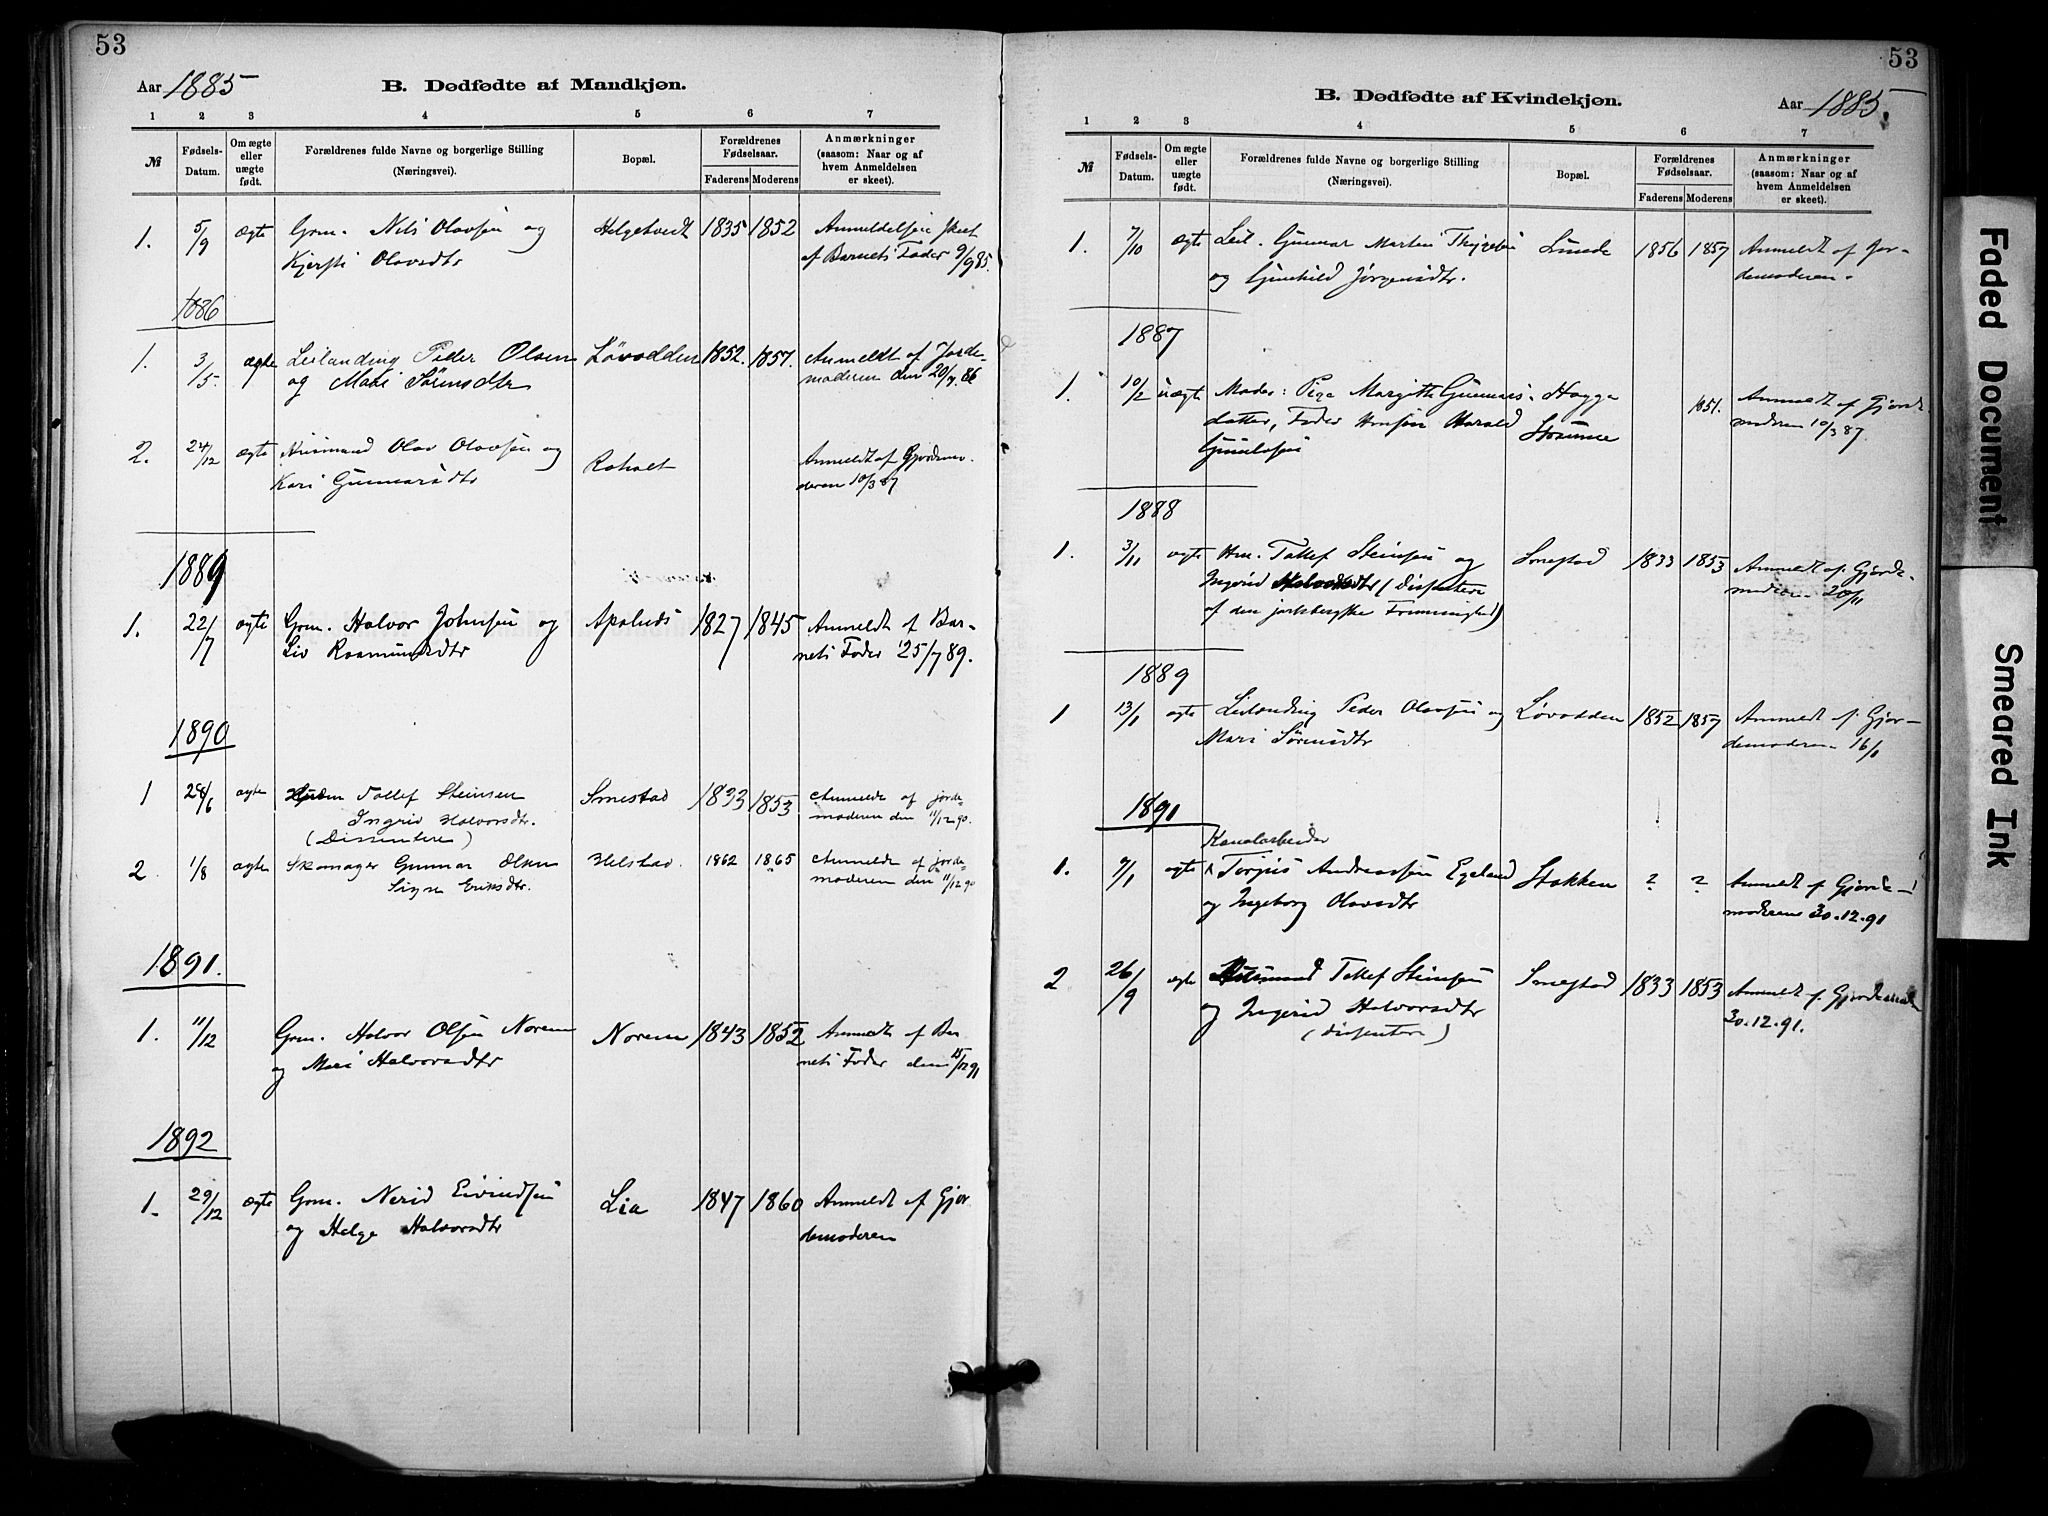 53
Aar 1885
B. Dødfødte af Mandkjøn.
1 2 3 4 5 6 7
№ Fødsels-Datum. Om ægte eller uægte født. Forældrenes fulde Navne og borgerlige Stilling (Næringsvei). Bopæl. Forældrenes Fødselsaar. Faderens Moderens Anmærkninger (saasom: Naar og af hvem Anmeldelsen er skeet).
1. 5/9 ægte Grm. Nils Olavsen og Helgetvedt 1835 1852 Anmeldelsen skeet
Kjersti Olavsdtr af Barnets Fader 9/9 85.
1886
1. 3/5. ægte Leilænding Peder Olsen Løvodden 1852. 1857. Anmeldt af Jorde-
og Mari Sørensdtr moderen den 20/7. 86
2. 24/12 ægte Husmand Olav Olavsen og Roholt Anmeldt af Gjordemo-
Kari Gunnarsdtr deren 10/3 87
1889
1. 22/7 ægte Grm. Halvor Johnsen og 1827 1845 Anmeldt af Bar-
Liv Rasmundsdtr nets Fader 25/7 89.
1890
1 28/6 ægte Tollef Steinsen Smestad 1833 1853 Anmeldt af jorde-
Ingrid Halvorsdtr. moderen den 11/12 90.
(Dissentere)
2 1/8 ægte Skomager Gunnar Olsen Helstad. 1862 1865 Anmeldt af jorde-
Signe Eriksdtr. moderen den 11/12 90
1891.
1. 11/12 Grm. Halvor Olsen Norem Norem 1843 1852 Anmeldt af Bar-
og Mari Halvorsdtr nets Fader den 15/12 91
1892
1. 29/12 ægte Grm. Nerid Eivindsen Lia 1847 1860 Anmeldt af Gjor-
og Helge Halvorsdtr demoderen
53
B. Dødfødte af Kvindekjøn.
Aar 1885.
1 2 3 4 5 6 7
№ Fødsels-Datum. Om ægte eller uægte født. Forældrenes fulde Navne og borgerlige Stilling (Næringsvei). Bopæl. Forældrenes Fødselsaar. Faderens Moderens Anmærkninger (saasom: Naar og af hvem Anmeldelsen er skeet).
1. 7/10 ægte Leil. Gunnar Martin Lunde 1856 1857 Anmeldt af Jor-
og Gunhild Jørgensdtr. demoderen.
1887
1. 10/2 uægte Moder: Pige Margithe Gunnars- Hogga 1851. Anmeldt af Gjorde-
datter, Fader Harald moderen 10/3 87.
1888
1. 3/11 ægte Hm. Tollef Steinsen og Smestad 1833 1853 Anmeldt af Gjorde-
Ingrid Halvorsdtr (Dissentere moderen 20/11
af den jarlsbergske Formenighed)
1889
1 13/1 ægte Leilænding Peder Olavsen og Løvodden 1852 1857 Anmeldt af Gjor-
Mari Sørensdtr demoderen 16/1
1891
Kanalarbeider
1. 7/1 ægte Torjus Andreassen Egeland Stokken ? ? Anmeldt af Gjorde-
og Ingeborg Olavsdtr moderen 30.12.91
2 26/9 ægte Husmand Tollef Steinsen Smestad 1833 1853 Anmeldt af Gjordemod.
og Ingerid Halvorsdtr 30.12.91.
(dissentere)
Faded Document
Smeared Ink